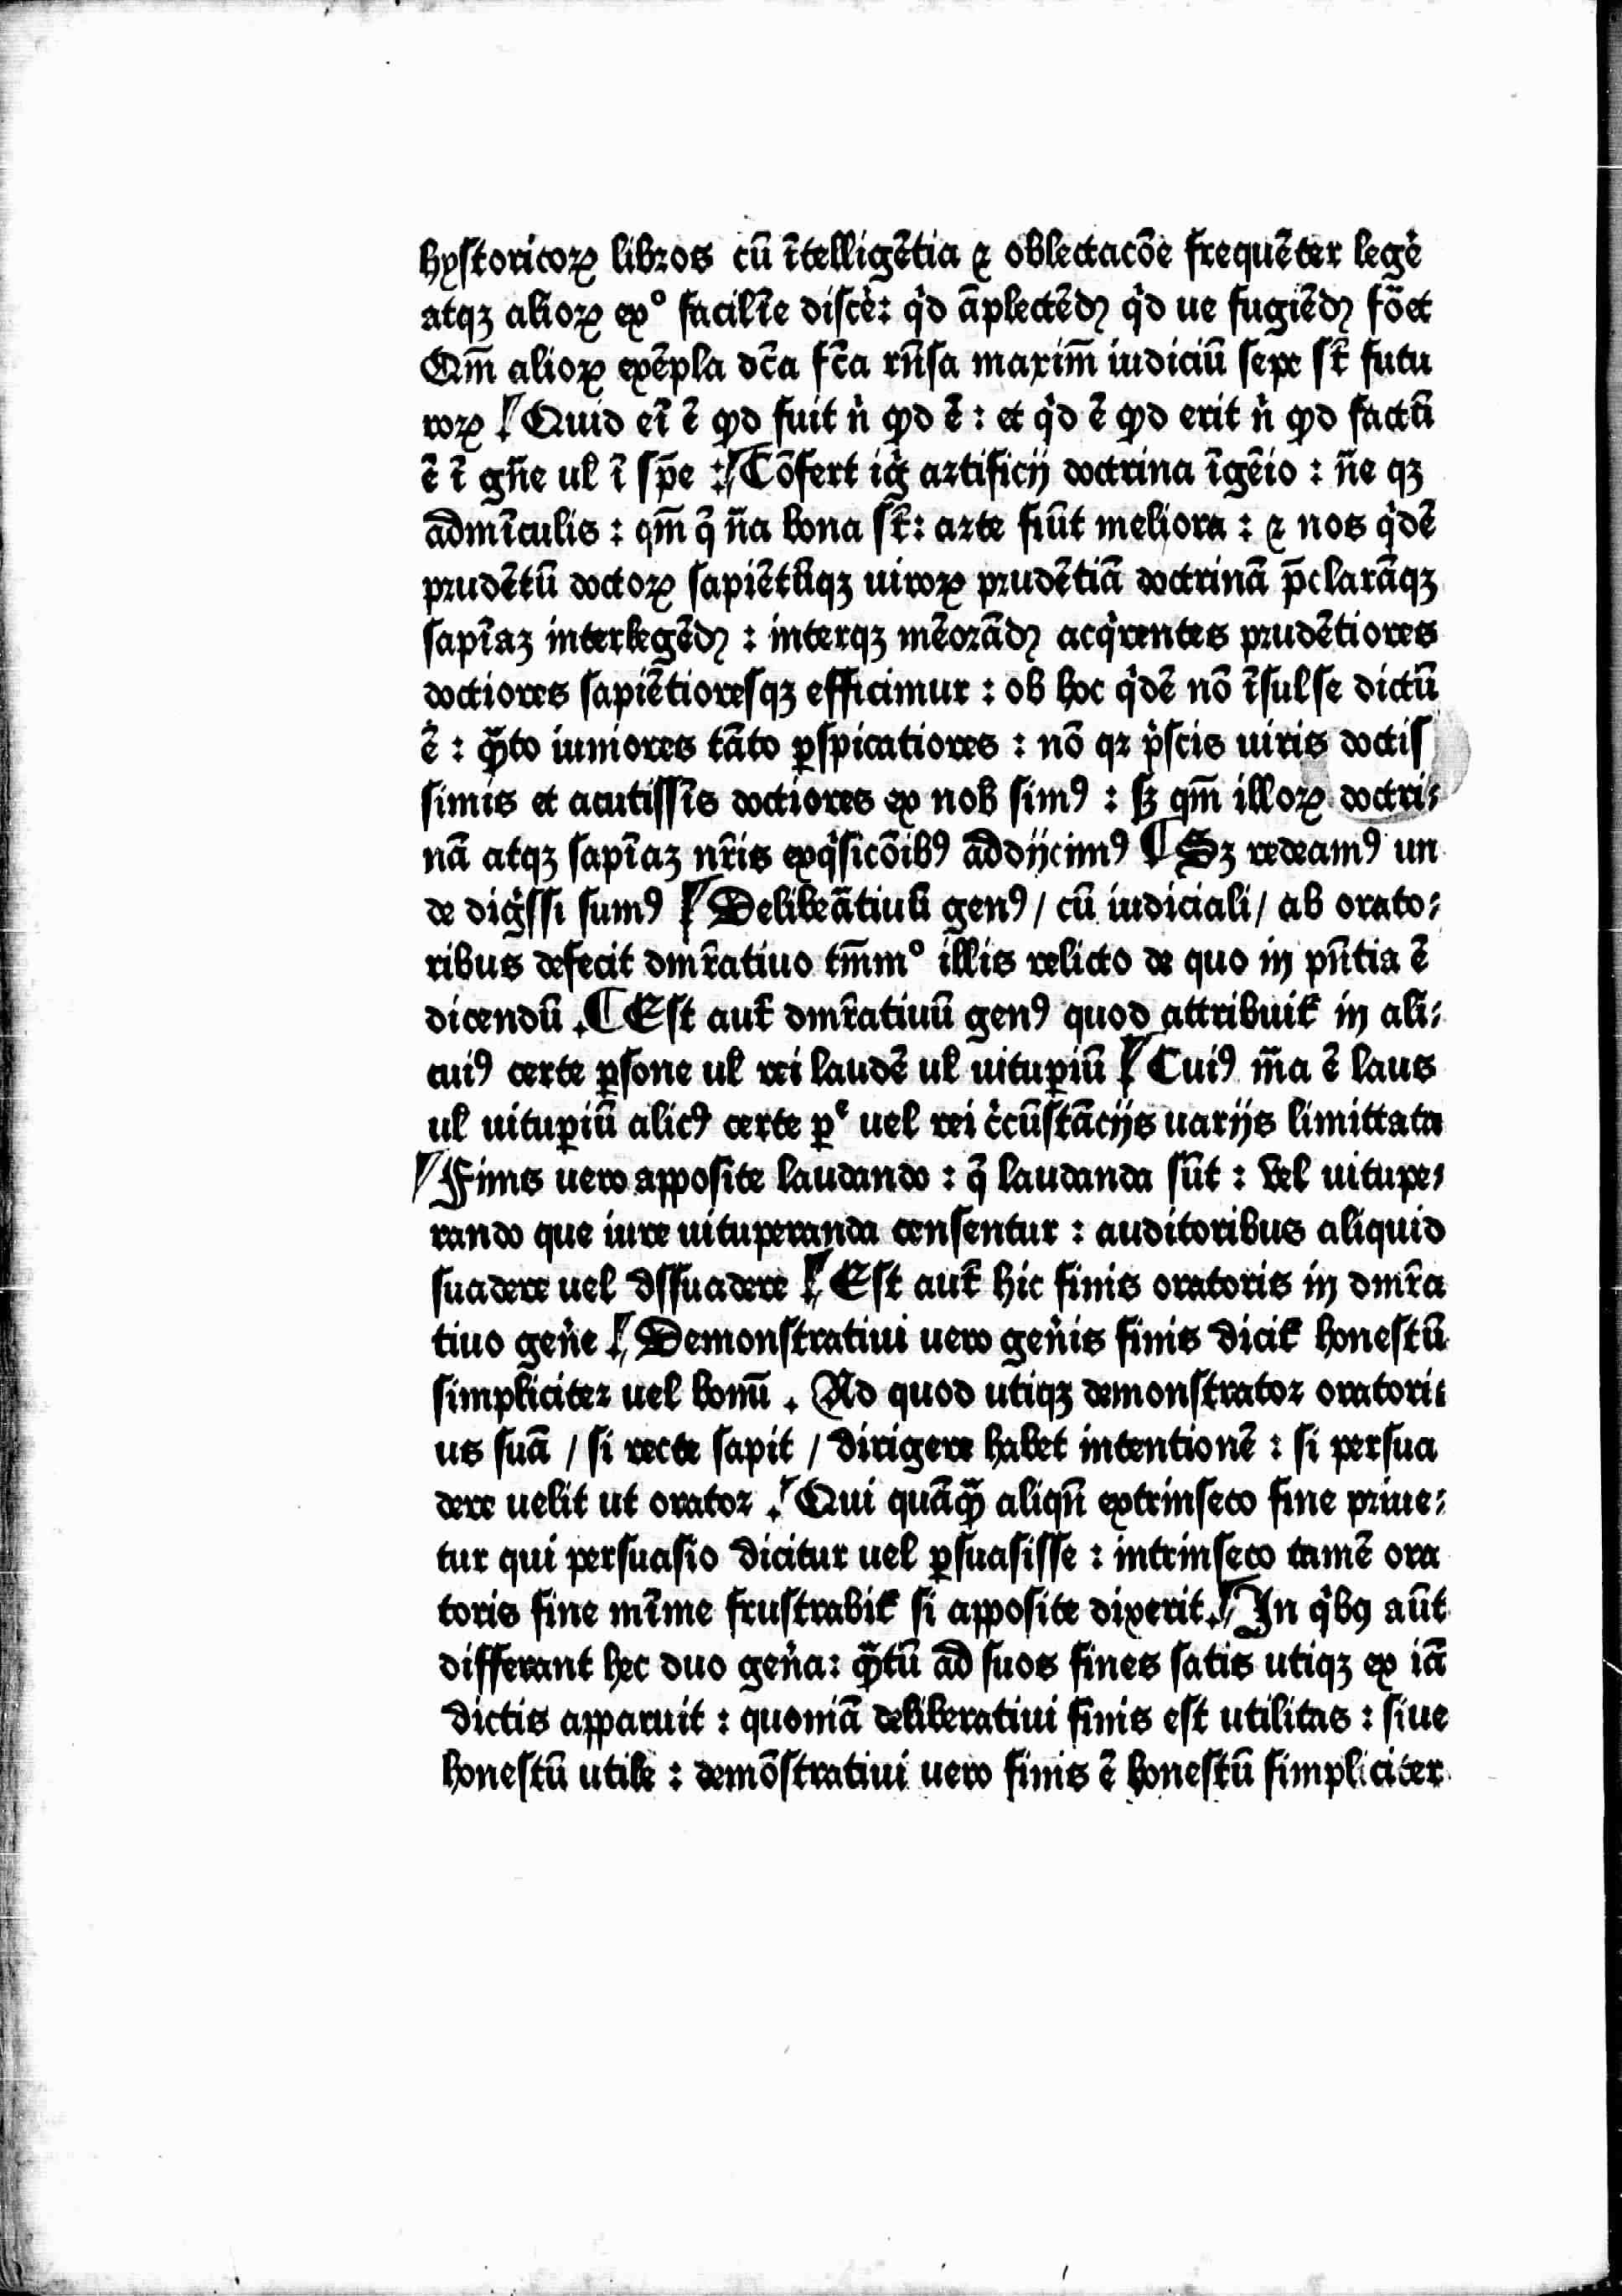 hystoricoꝝ libros cū ītelligētia ⁊ oblectacōe frequēter legẻ
atqꝫ alioꝝ exº facilīe discẻ: qͥd āplectēdꝫ qͥd ue fugiēdꝫ fōet
Qm̄ alioꝝ exēpla dc̄a fc̄a rn̄sa maxim̄ iudiciū sepe st̄ futu
roꝝ Quid eī ē qd fuit n̍ qd ē: et qͥd ē qd erit n̍ qd factū
ē ī gn̄e ul ī sp̄e : Cōfert igͥ artificij doctrina īgēio : n̄e qꝫ
admīculis : qm̄ q̄ n̄a bona st̄: arte fiūt meliora : ⁊ nos qͥdē
prudētū doctoꝝ sapiētūqꝫ uiroꝝ prudētiā doctrinā p̄clarāqꝫ
sapīaꝫ interlegēdꝫ : interqꝫ mēorādꝫ acqͥrentes prudētiores
doctiores sapiētioresqꝫ efficimur : ob hoc qͥdē nō īsulse dictū
ē : qᷓto iuniores tāto ꝑspicatiores : nō qꝛ pͥscis uiris doctis
simis et acutissīs doctiores ex nob simꝰ : sꝫ qm̄ illoꝝ doctri⸗
nā atqꝫ sapīaꝫ nr̄is exqͥsicōibꝰ addijcimꝰ ¶ Sꝫ redeamꝰ un
de digͥssi sumꝰ Delibeātiuū genꝰ / cū iudiciali / ab orato⸗
ribus defecit dmr̄atiuo tm̄mº illis relicto de quo in pn̄tia ē
dicendū . ¶ Est aut̄ dmr̄atiuū genꝰ quod attribuit᷑ in ali⸗
cuiꝰ certe ꝑsone ul rei laudē ul uituꝑiū Cuiꝰ m̄a ē laus
ul uituꝑiū alicꝰ certe ꝑᵉ uel rei cͥcūstācijs uarijs limittata
Finis uero apposite laudando : q̄ laudanda sūt : vel uitupe⸗
rando que iure uituperanda censentur : auditoribus aliquid
suadere uel dssuadere Est aut̄ hic finis oratoris in dmr̄a
tiuo gen̍e Demonstratiui uero gen̍is finis dicit᷑ honestū
simpliciter uel bonū . Ad quod utiqꝫ demonstrator oratori⸗
us suā / si recte sapit / dirigere habet intentionē : si persua
dere uelit ut orator . Qui quāqᷓ aliqn̄ extrinseco fine priue⸗
tur qui persuasio dicitur uel ꝑsuasisse : intrinseco tamē ora
toris fine mīme frustrabit᷑ si apposite dixerit. In qͥbꝰ aūt
differant hec duo gen̍a: qᷓtū ad suos fines satis utiqꝫ ex iā
dictis apparuit : quoniā deliberatiui finis est utilitas : siue
honestū utile : demōstratiui uero finis ē honestū simpliciter